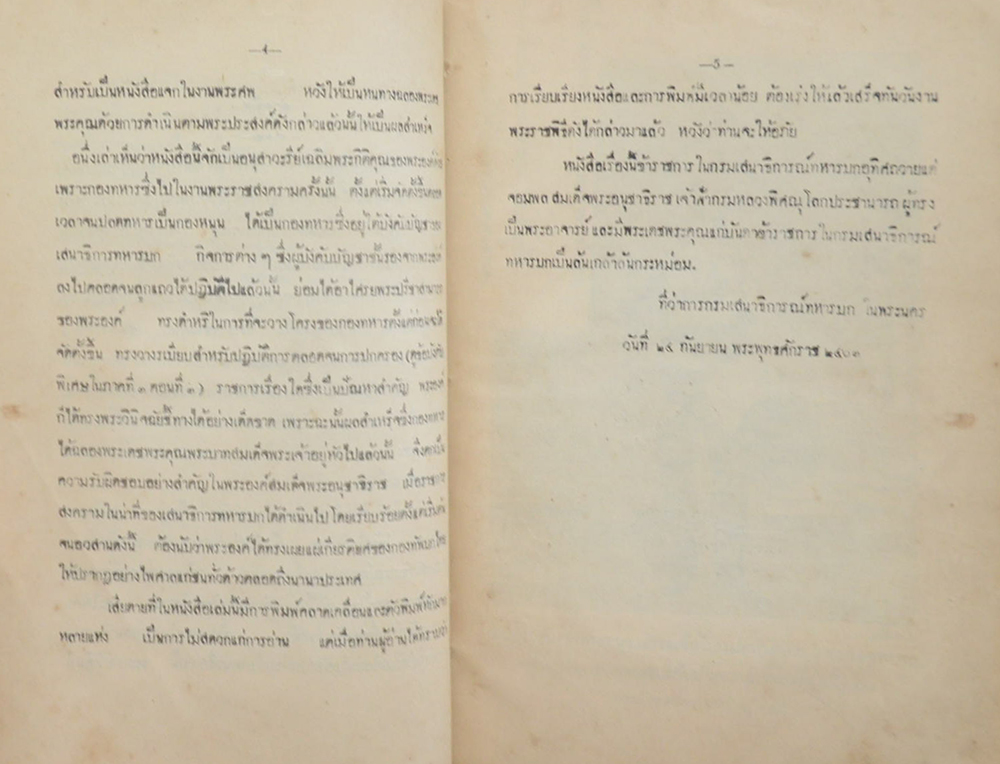 —4—
สำหรับเป็นหนังสือแจกในงานพระศพ หวังให้เป็นหนทางฉลองพระเดช
พระคุณด้วยการดำเนินตามพระประสงค์ดังกล่าวแล้วนั้นให้เป็นผลสำเร็จ
อนึ่งเล่าเห็นว่าหนังสือนี้จักเป็นอนุสาวะรีย์เฉลิมพระกิติคุณของพระองค์
เพราะกองทหารซึ่งไปในงานพระราชสงครามครั้งนั้น ตั้งแต่เริ่มจัดตั้งขึ้นตลอด
เวลาจนปลดทหารเป็นกองหนุน ได้เป็นกองทหารซึ่งอยู่ใต้บังคับบัญชาของ
เสนาธิการทหารบก กิจการต่าง ๆ ซึ่งผู้บังคับบัญชาชั้นรองจากพระองค์
ลงไปตลอดจนลูกแถวได้ปฏิบัติไปแล้วนั้น ย่อมได้อาไศรยพระปรีชาสามารถ
ของพระองค์ ทรงดำหริในการที่จะวางโครงของกองทหารตั้งแต่ก่อน
จัดตั้งขึ้น ทรงวางระเบียบสำหรับปฏิบัติการตลอดจนการปกครอง (ดูข้อบังคับ
พิเศษในภาคที่ ๑ ตอนที่ ๑) ราชการเรื่องใดซึ่งเป็นปัณหาสำคัญ พระองค์
ก็ได้ทรงพระวินิจฉัยชี้ทางได้อย่างเด็ดขาด เพราะฉะนั้นผลสำเร็จซึ่งกองทหาร
ได้ฉลองพระเดชพระคุณพระบาทสมเด็จพระเจ้าอยู่หัวไปแล้วนั้น จึงตกเป็น
ความรับผิดชอบอย่างสำคัญในพระองค์สมเด็จพระอนุชาธิราช เมื่อราชการ
สงครามในน่าที่ของเสนาธิการทหารบกได้ดำเนินไปโดยเรียบร้อยตั้งแต่เริ่มต้น
จนอวสานดังนี้ ต้องนับว่าพระองค์ได้ทรงเผยแผ่เกียรติยศของกองทัพบกไทย
ให้ปรากฎอย่างไพศาลแก่ชนทั่วด้าวตลอดถึงนานาประเทศ
เสียดายที่ในหนังสือเล่มนี้มีการพิมพ์คลาดเคลื่อนและตัวพิมพ์
หลายแห่ง เป็นการไม่สดวกแก่การอ่าน แต่เมื่อท่านผู้อ่านได้ทราบว่า
—5—
การเรียบเรียงหนังสือและการพิมพ์มีเวลาน้อย ต้องเร่งให้แล้วเสร็จทันวันงาน
พระราชพิธีดังได้กล่าวมาแล้ว หวังว่าท่านจะให้อภัย
หนังสือเรื่องนี้ข้าราชการในกรมเสนาธิการณ์ทหารบกอุทิศถวายแด่
จอมพล สมเด็จพระอนุชาธิราช เจ้าฟ้ากรมหลวงพิศณุโลกประชานารถ ผู้ทรง
เป็นพระอาจารย์ และมีพระเดชพระคุณแก่บันดาข้าราชการในกรมเสนาธิการณ์
ทหารบกเป็นล้นเกล้าล้นกระหม่อม.
ที่ว่าการกรมเสนาธิการณ์ทหารบก ในพระนคร
วันที่ ๒๕ กันยายน พระพุทธศักราช